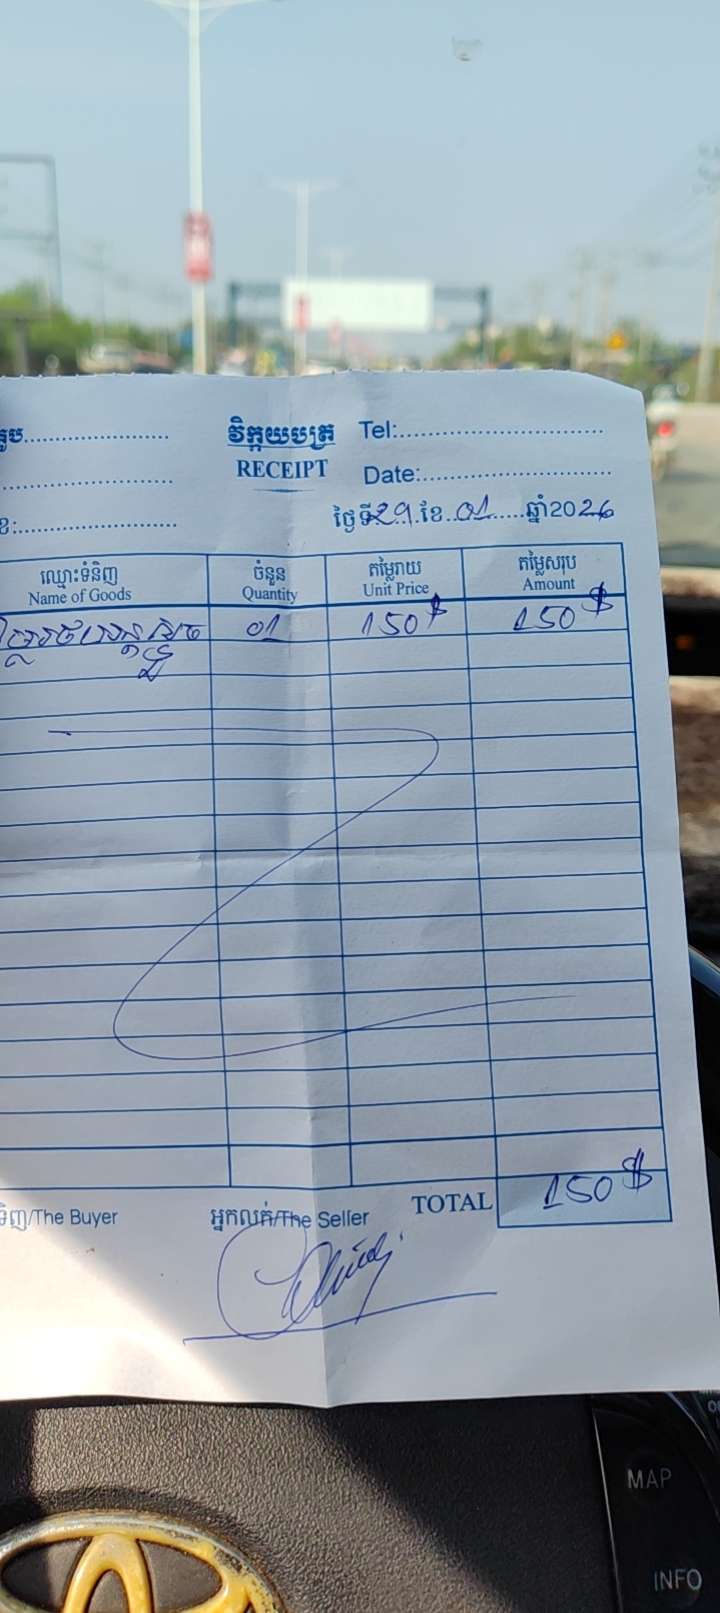 វិក្កយបត្រ Tel:
RECEIPT Date:
ថ្ងៃទី 29 ខែ 01 ឆ្នាំ2026
ឈ្មោះទំនិញ ចំនួន តម្លៃរាយ តម្លៃសរុប
Name of Goods Quantity Unit Price Amount
01 150$ 150$
TOTAL 150$
ទិញ/The Buyer អ្នកលក់/The Seller
MAP
INFO